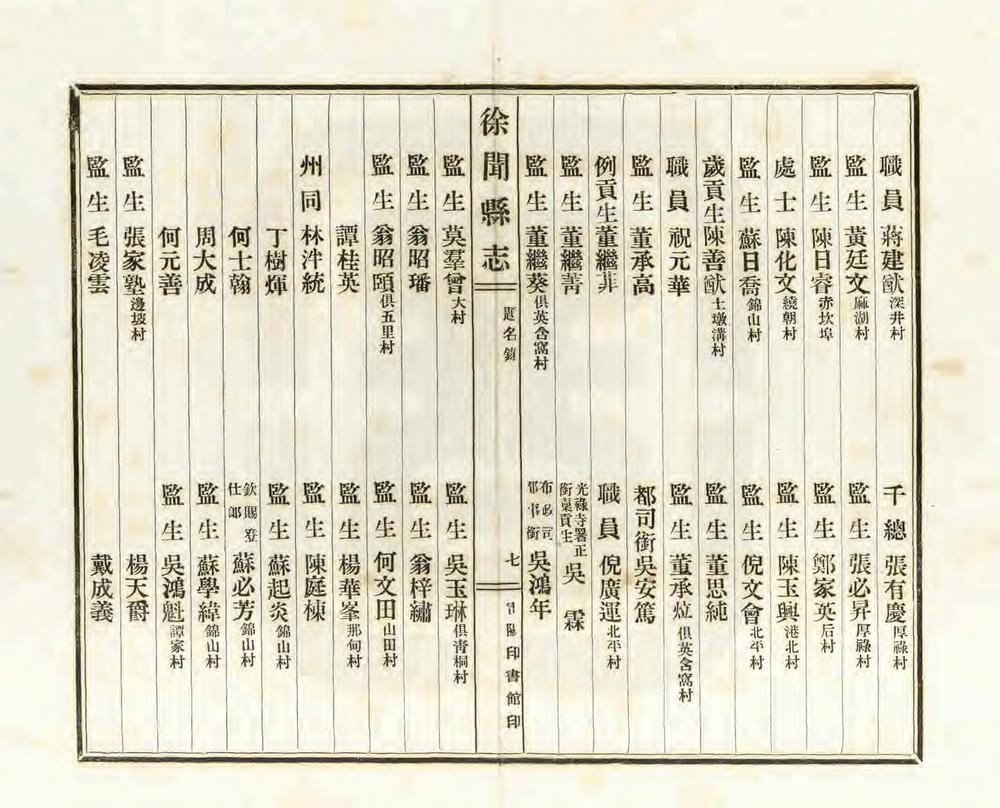 職員 蔣建猷 深井村 千總 張有慶 厚祿村
監生 黃廷文 麻湖村 監生 張必昇 厚祿村
監生 陳日睿 赤坎埠 監生 鄭家英 后村
處士 陳化文 繞朝村 監生 陳玉興 港北村
監生 蘇日喬 錦山村 監生 倪文會 北平村
歲貢生 陳善猷 土墩溝村 監生 董思純
職員 祝元華 監生 董承 俱英含窩村
監生 董承高 都司銜 吳安篤
例貢生 董繼非 職員 倪廣運 北平村
監生 董繼菁 光祿寺署正銜稟貢生 吳霖
監生 董繼葵 俱英含窩村 布政司事銜 吳鴻年
徐聞縣志 題名錄 七 印書館印
監生 莫羣曾 大村 監生 吳玉琳 俱青桐村
監生 翁昭璠 監生 翁梓繡
監生 翁昭頤 俱五里村 監生 何文田 山田村
譚桂英 監生 楊華峯 那旬村
州同 林泮統 監生 陳庭棟
丁樹煇 監生 蘇起炎 錦山村
何士翰 欽賜登仕郎 蘇必芳 錦山村
周大成 監生 蘇學緯 錦山村
何元善 監生 吳鴻魁 譚家村
監生 張家塾 邊坡村 楊天爵
監生 毛凌雲 戴成義